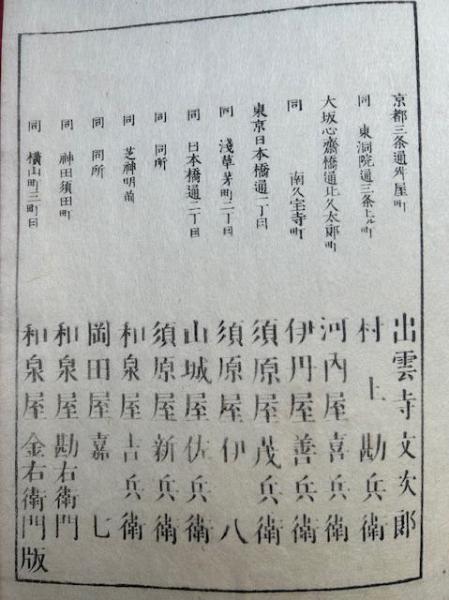 京都三条通舛屋町 出雲寺文次郎
同 東洞院通三条上ル町 村上勘兵衛
大坂心齋橋通北久太郎町 河内屋喜兵衛
同 南久宝寺町 伊丹屋善兵衛
東京日本橋通一丁目 須原屋茂兵衛
同 淺草茅町二丁目 須原屋伊八
同 日本橋通二丁目 山城屋佐兵衛
同 同所 須原屋新兵衛
同 芝神明前 和泉屋吉兵衛
同 同所 岡田屋嘉七
同 神田須田町 和泉屋勘右衛門
同 橫山町三丁目 和泉屋金右衛門版